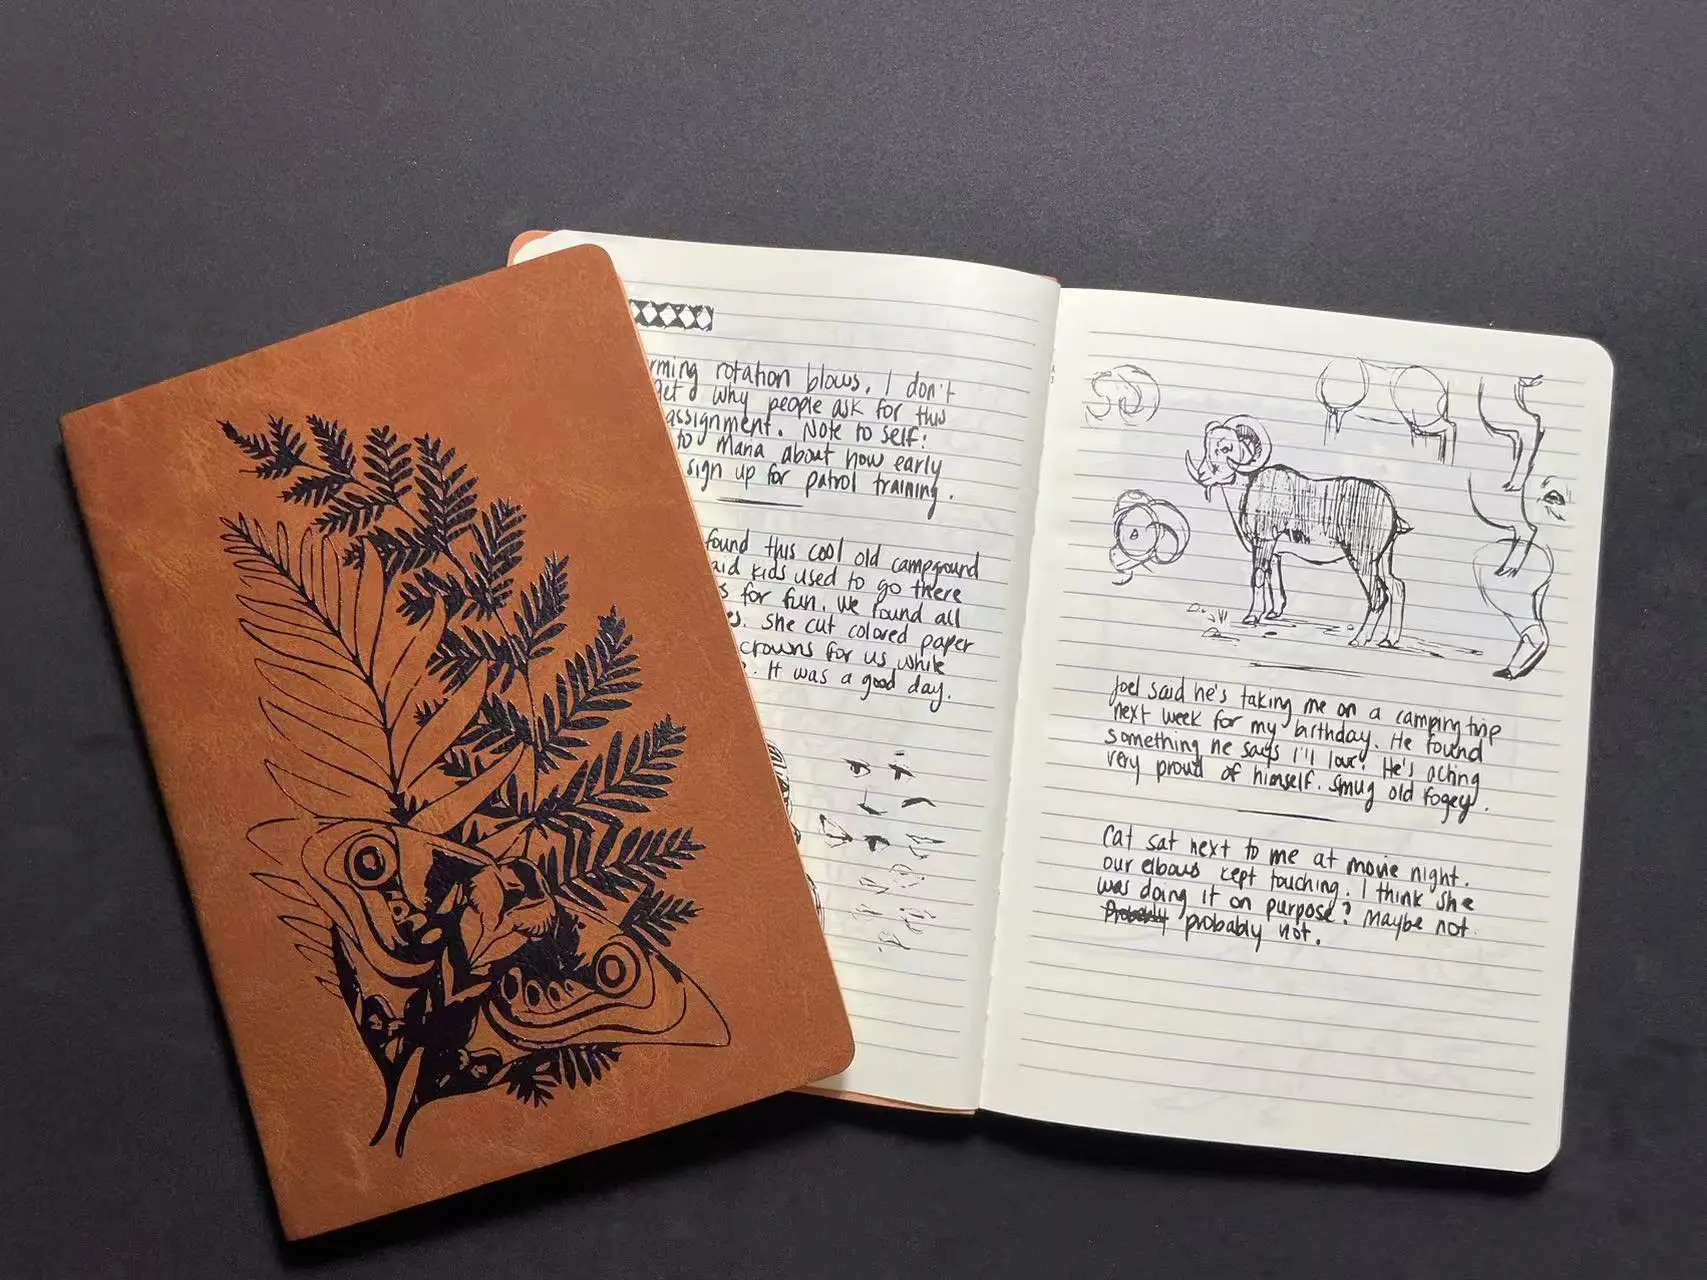 rming rotation blows. I don't
get why people ask for this
assignment. Note to self:
to Maria about how early
sign up for patrol training.
found this cool old campground
aid kids used to go there
s for fun. We found all
es. She cut colored paper
crowns for us while
. It was a good day.
Joel said he's taking me on a camping trip
next week for my birthday. He found
something he says I'll love. He's acting
very proud of himself. Smug old fogey.
Cat sat next to me at movie night.
our elbows kept touching. I think she
was doing it on purpose? Maybe not.
Probably probably not.